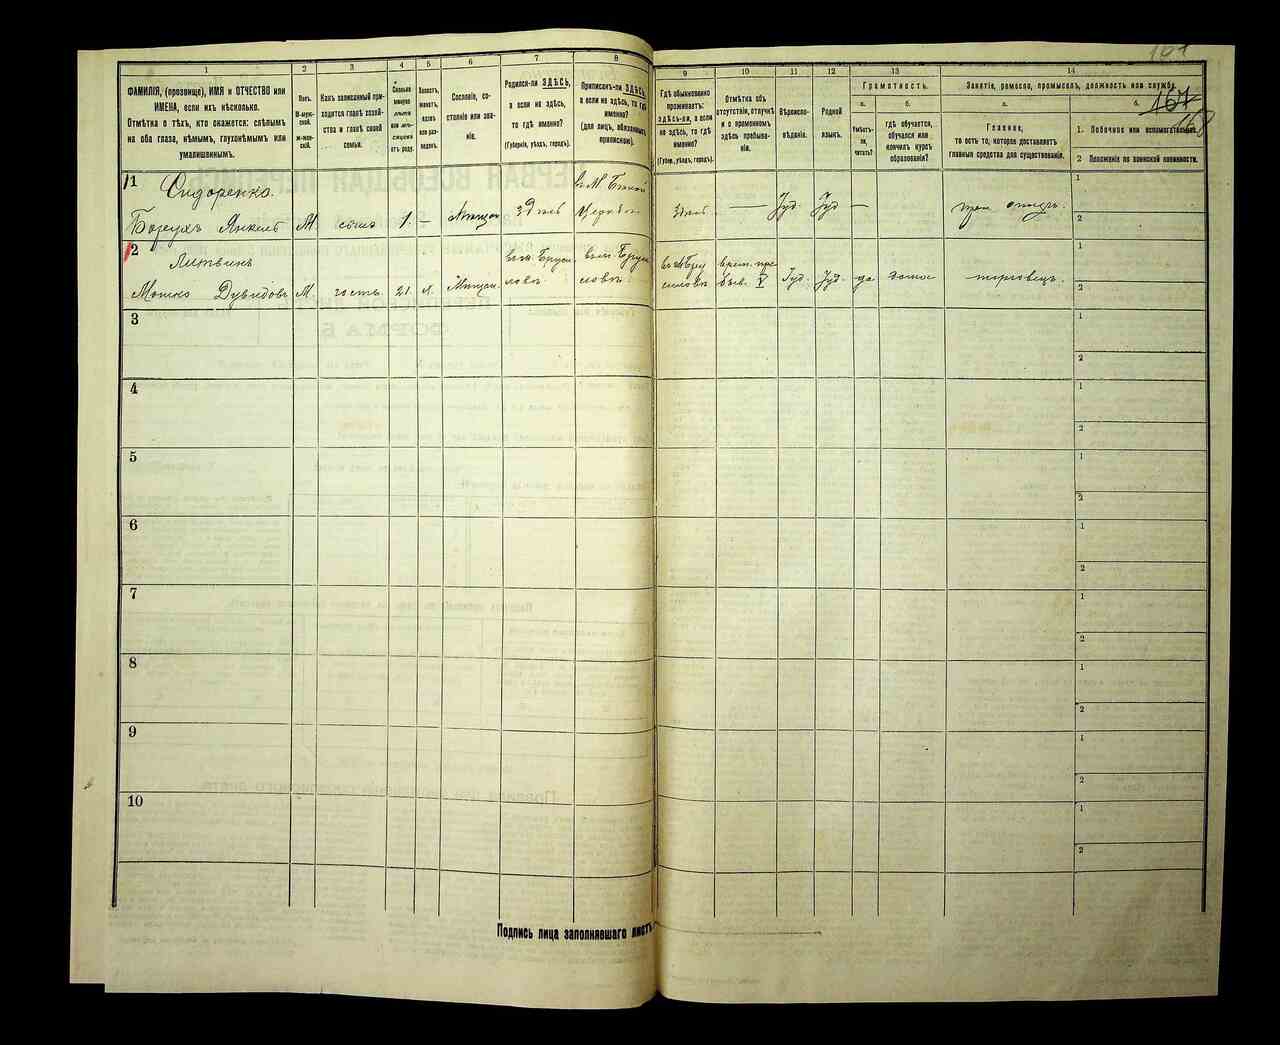 1
2
3
4
5
6
7
8
ФАМИЛІЯ, (прозвище), ИМЯ и ОТЧЕСТВО или
ИМЕНА, если ихъ нѣсколько.
Отмѣтка о тѣхъ, кто окажется: слѣпымъ
на оба глаза, нѣмымъ, глухонѣмымъ или
умалишеннымъ.
Полъ.
М-муж-
ской.
ж-жен-
скій.
Какъ записанный при-
ходится главѣ хозяй-
ства и главѣ своей
семьи.
Сколько
минуло
лѣтъ
или мѣ-
сяцевъ
отъ роду.
Холостъ,
женатъ,
вдовъ
или раз-
веденъ.
Сословіе, со-
стояніе или зва-
ніе.
Родился-ли ЗДѢСЬ,
а если не здѣсь,
то гдѣ именно?
(Губернія, уѣздъ, городъ).
Приписанъ-ли ЗДѢСЬ,
а если не здѣсь, то гдѣ
именно?
(для лицъ, обязанныхъ
припискою).
9
10
11
12
13
14
Гдѣ обыкновенно
проживаетъ:
здѣсь-ли, а если
не здѣсь, то гдѣ
именно?
(Губерн., уѣздъ, городъ).
Отмѣтка объ
отсутствіи, отлучкѣ
и о временномъ
здѣсь пребыва-
ніи.
Вѣроиспо-
вѣданіе.
Родной
языкъ.
Грамотность.
а.
б.
Умѣетъ-
ли
читать?
гдѣ обучается,
обучался или
кончилъ курсъ
образованія?
Занятіе, ремесло, промыселъ, должность или служба.
а.
б.
167
168
Главное,
то есть то, которое доставляетъ
главныя средства для существованія.
1. Побочное или вспомогательное.
2 Положеніе по воинской повинности.
1 Сидоренко
Борухъ Янкель М. сынъ 1. — Мѣщан здѣсь
здѣсь — Іуд. Іуд —
1
2
2 Литвинъ
Мошко Дувидовъ М. гость 21 х. Мѣщан въ м. Бруси
ловѣ въ м. Бруси
ловѣ
въ м. Бру
силовѣ врем. пре
быв. Іуд. Іуд. да торговецъ.
1
2
3
1
2
4
1
2
5
1
2
6
1
2
7
1
2
8
1
2
9
1
2
10
1
2
Подпись лица заполнявшаго листъ